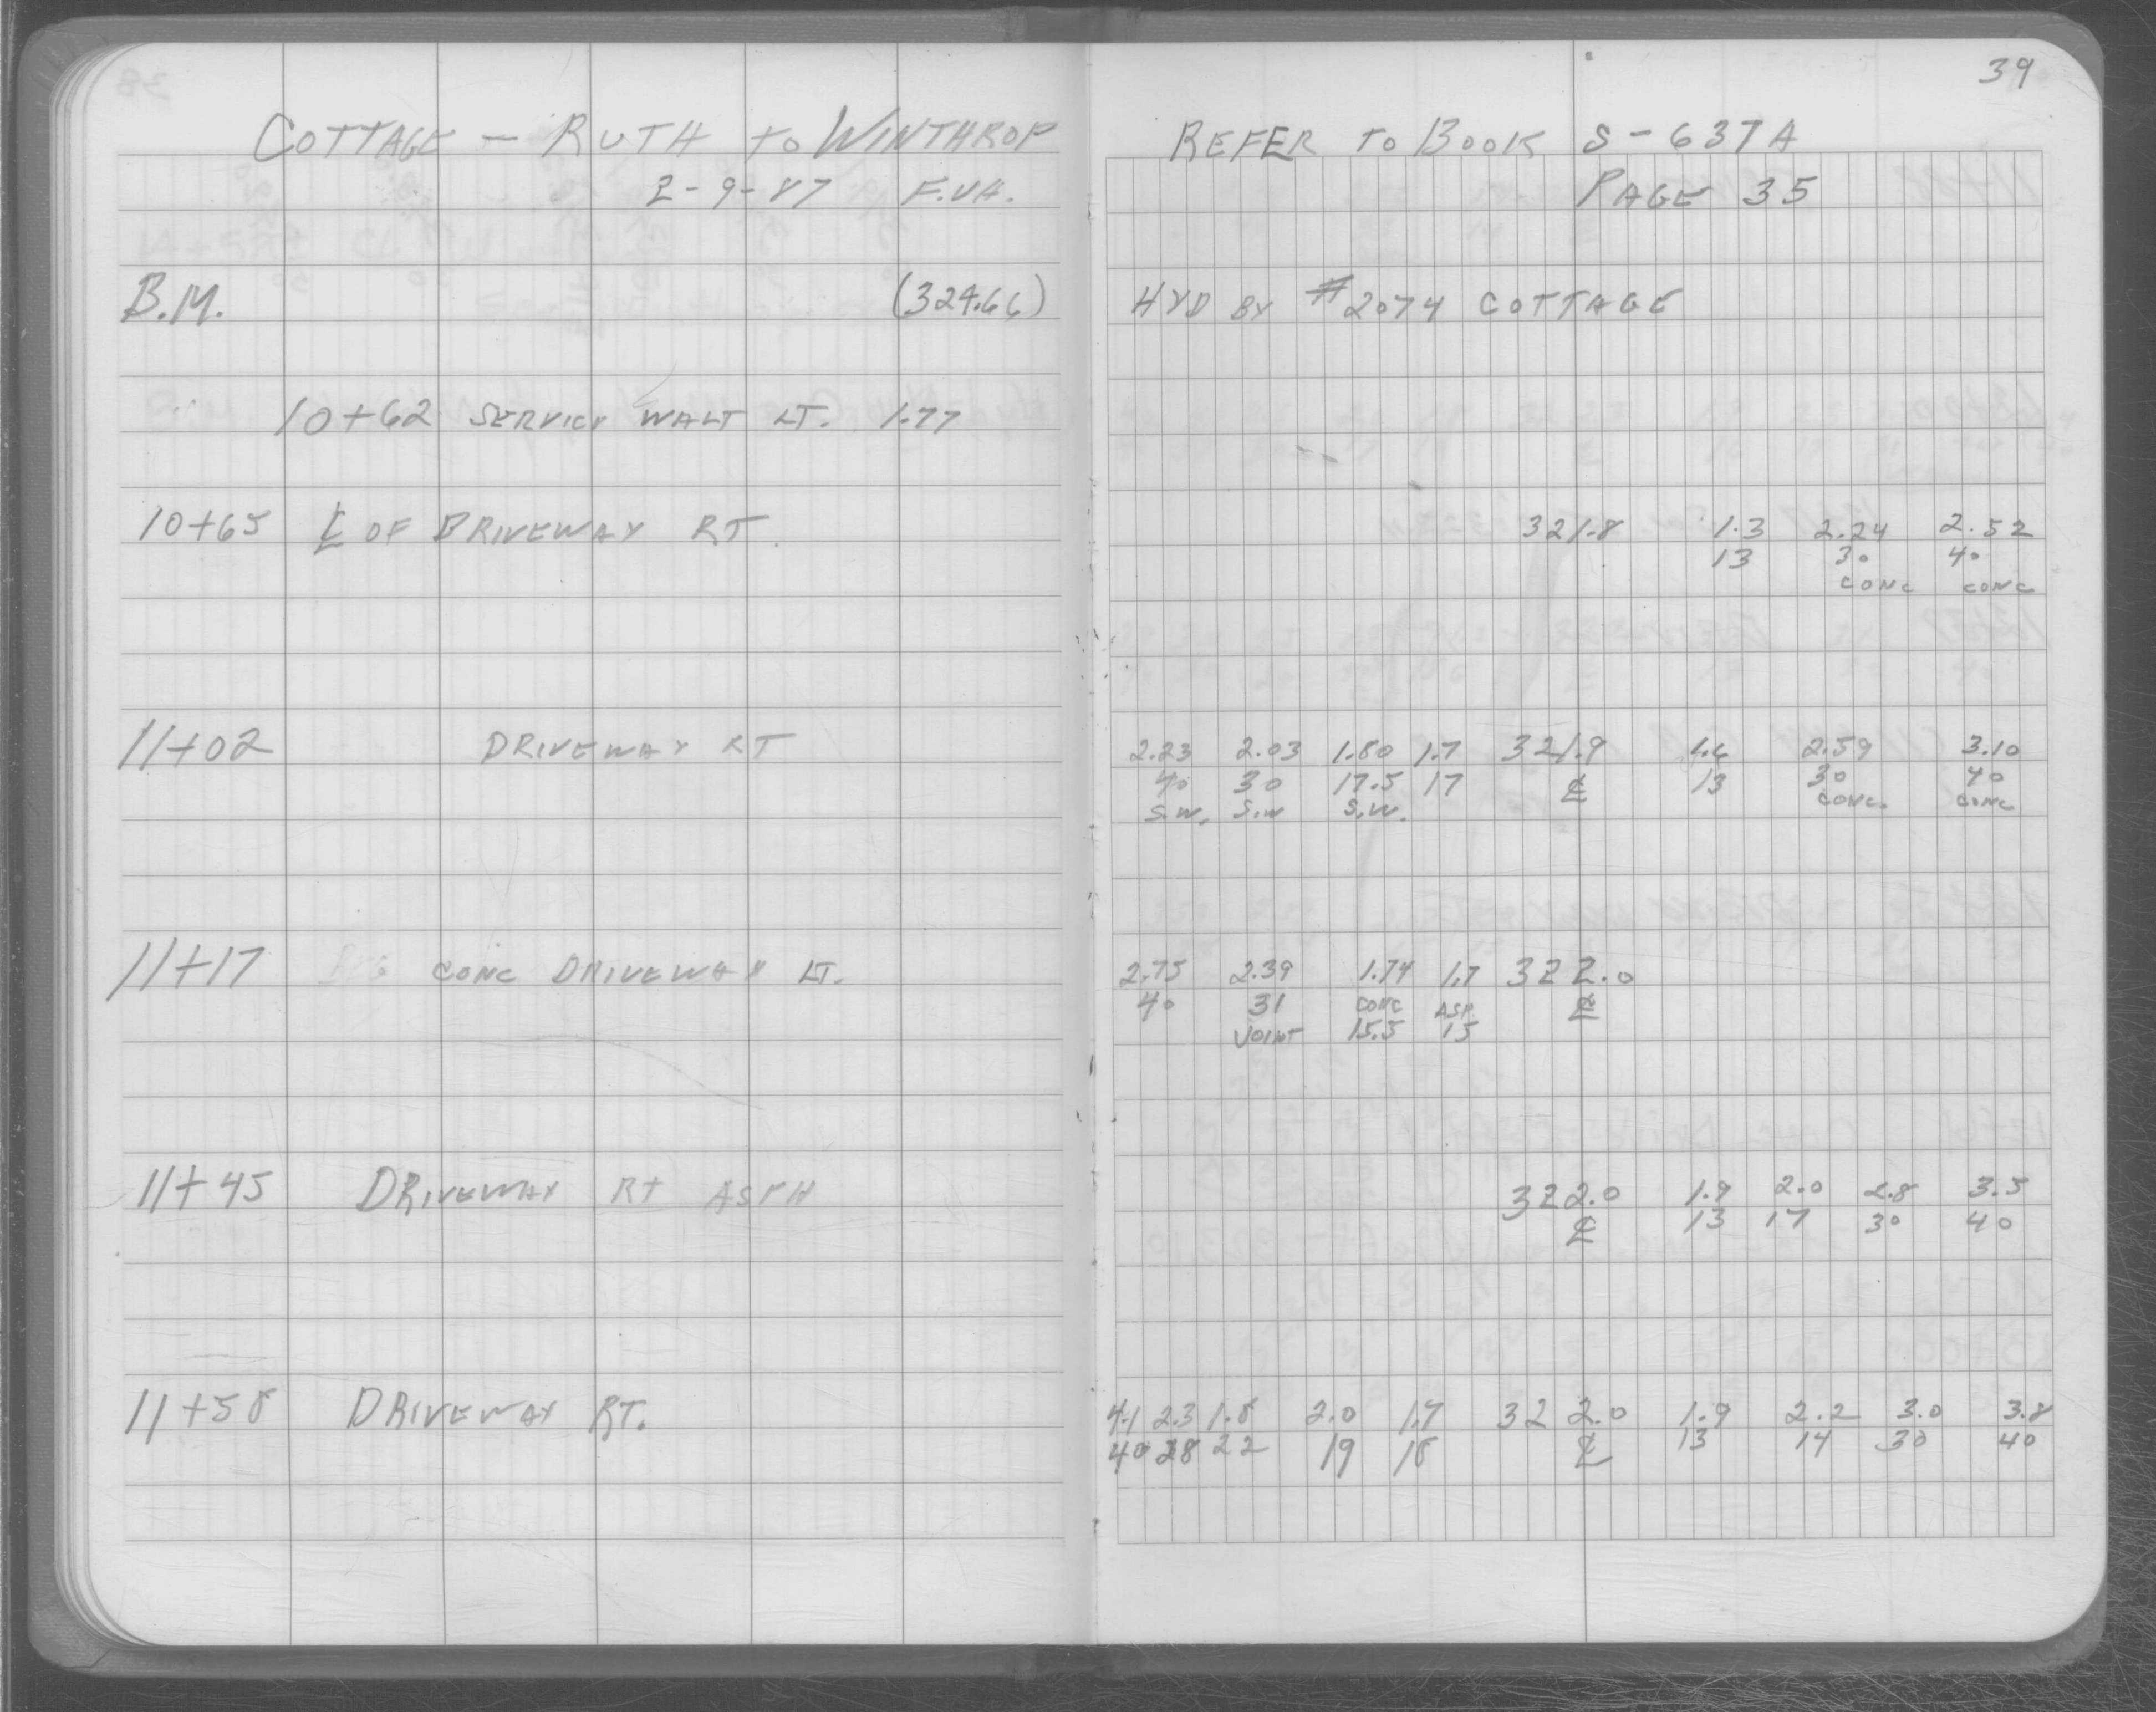 39
COTTAGE - RUTH TO WINTHROP
2-9-87 F.V.A.
REFER TO BOOK S-637A
PAGE 35
B.M. (324.66) HYD BY #2074 COTTAGE
10+62 SERVICE WALT LT. 1.77
10+65 ℄ OF DRIVEWAY RT. 321.8 1.3 2.24 2.52
13 30 40
CONC CONC
11+02 DRIVEWAY RT 2.23 2.03 1.80 1.7 321.9 1.6 2.59 3.10
40 30 17.5 17 ℄ 13 30 40
S.W. S.W S.W. CONC. CONC
11+17 CONC DRIVEWAY LT. 2.75 2.39 1.74 1.7 322.0
40 31 CONC ASP. ℄
JOINT 15.5 15
11+45 DRIVEWAY RT ASPH 322.0 1.9 2.0 2.8 3.5
℄ 13 17 30 40
11+58 DRIVEWAY RT. 4.1 2.3 1.8 2.0 1.7 322.0 1.9 2.2 3.0 3.8
40 28 22 19 18 ℄ 13 14 30 40